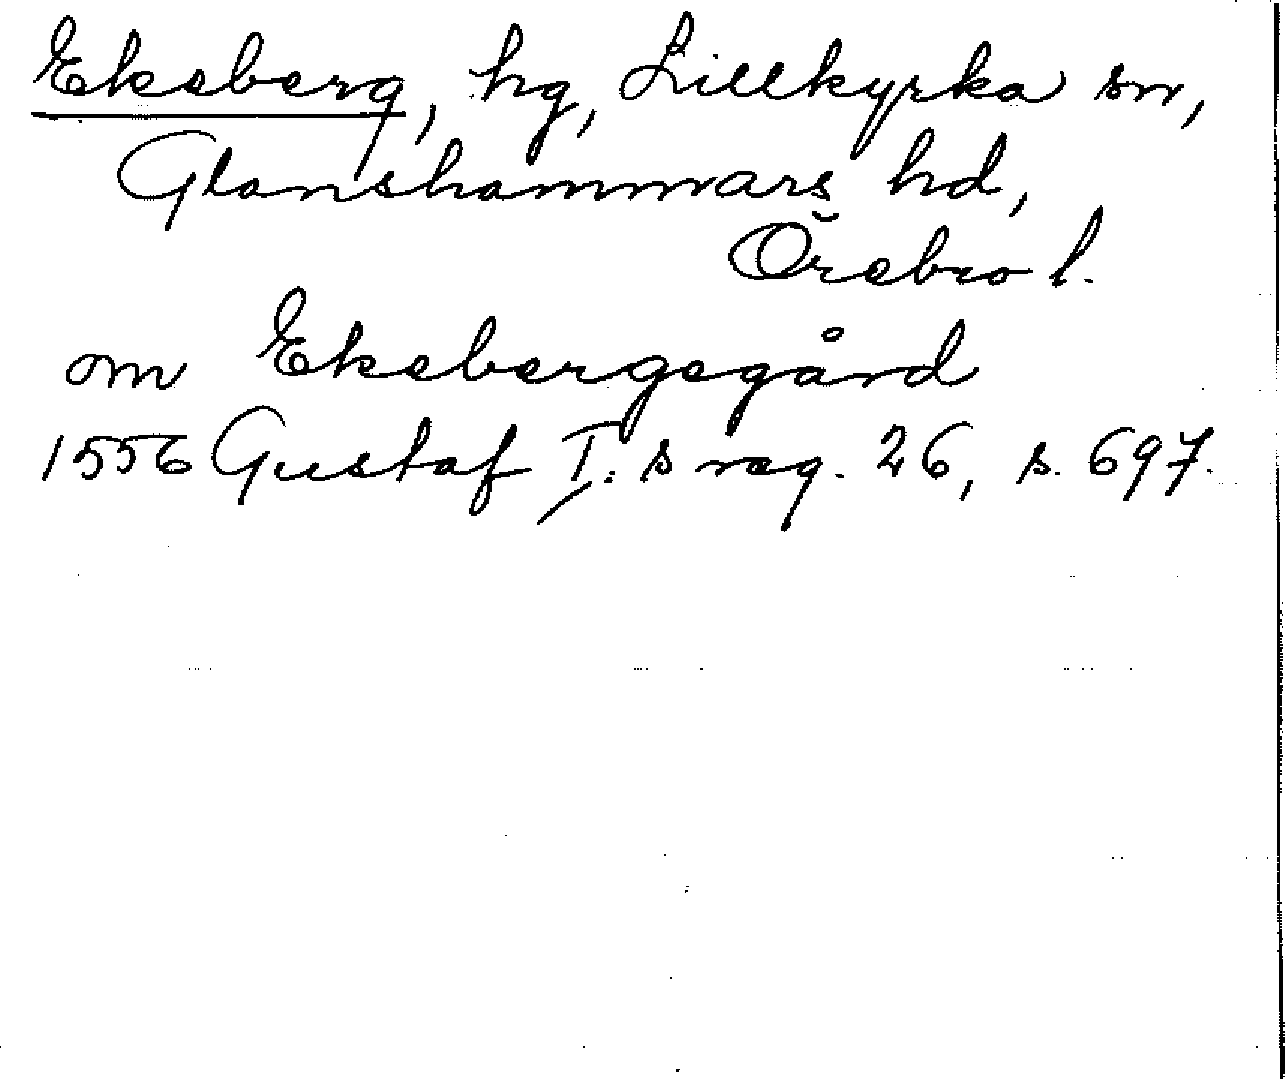 Ekeberg, hg, Lillkyrka sn,
Glanshammars hd,
Örebro l.
om Ekebergegård
1556 Gustaf I:s reg. 26, s. 697.